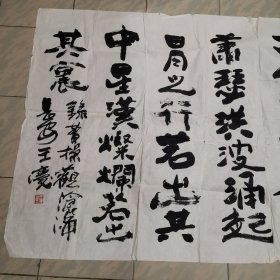 蕭瑟洪波涌起
日月之行若出其
中星漢燦爛若出
其裏
錄曹操觀滄海